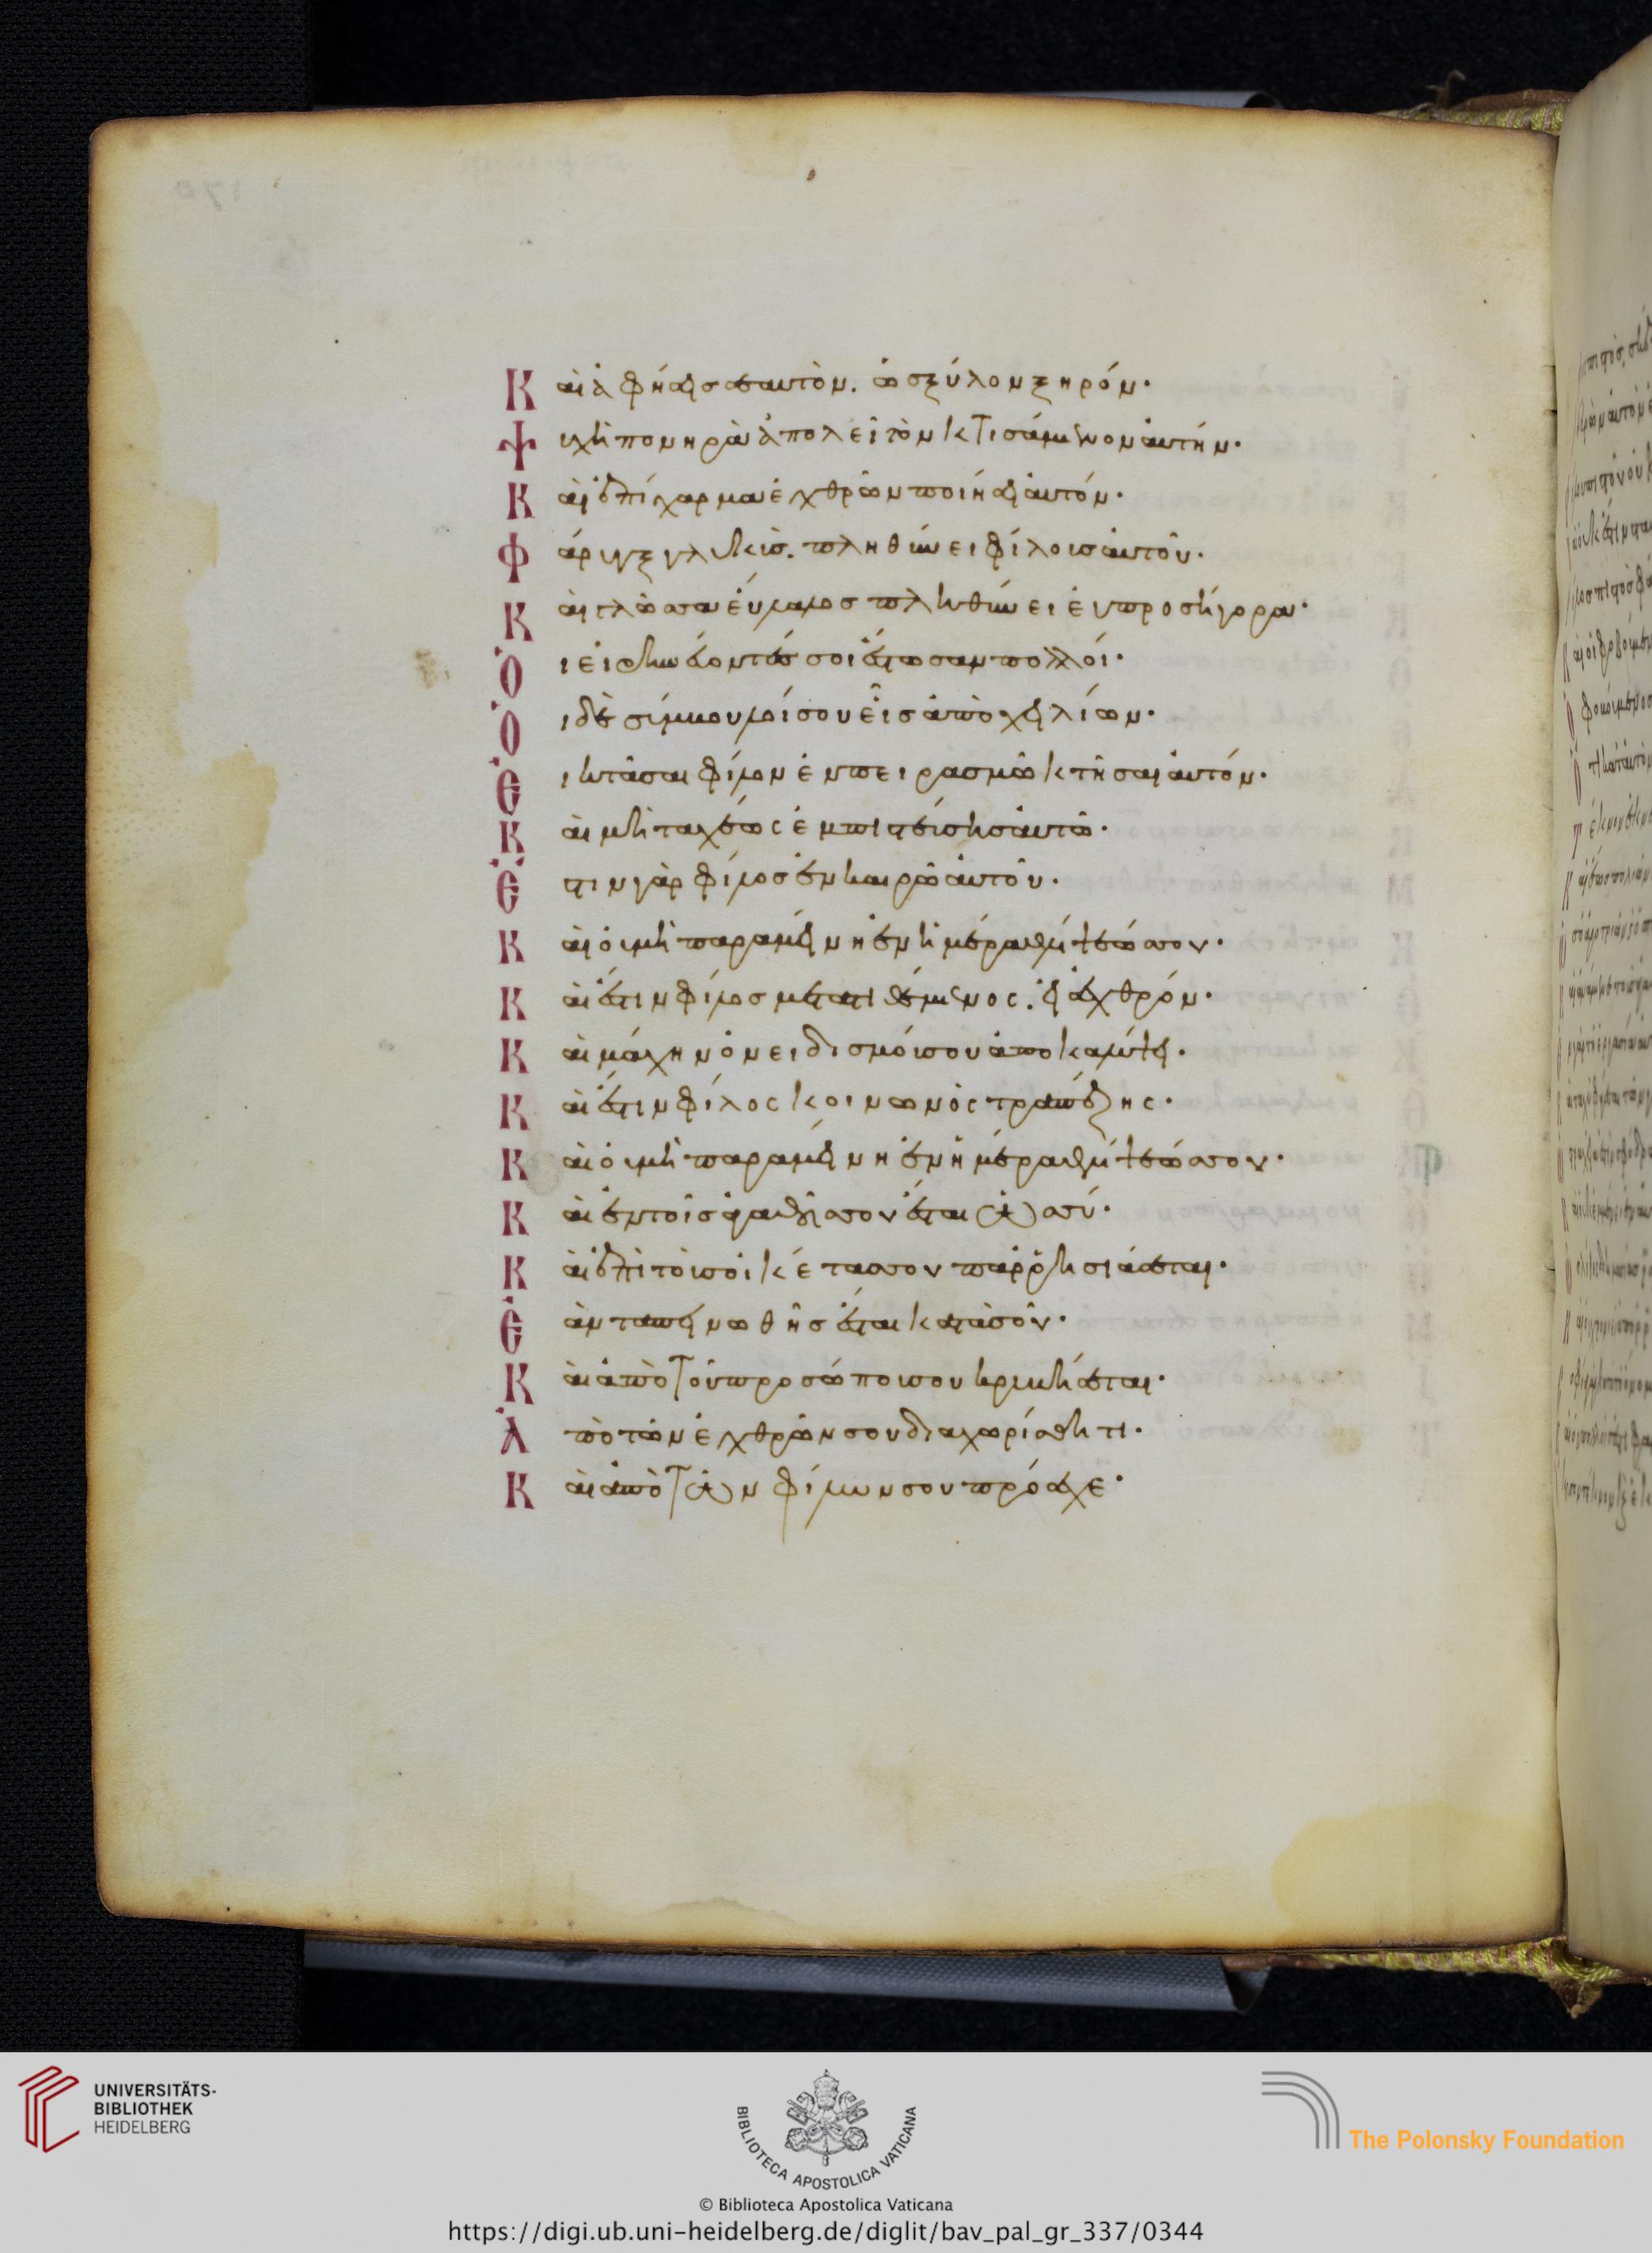 Καὶ ἀφήσεις σεαυτὸν. ὡς ξύλον ξηρόν·
Ψυχὴ πονηρὰ ἀπολεῖ τὸν κτισάμενον αὐτήν·
Καὶ ἐπίχαρμα ἐχθρῶν ποιήσει αὐτόν·
Φάρυγξ γλυκὺς. πληθύνει φίλοις αὐτοῦ·
Καὶ γλῶσσα εὔλαλος πληθύνει εὐπροσήγορα·
Ὁι εἰρηνεύοντές σοι ἔστωσαν πολλόι·
Ὁι δὲ σύμβουλοί σου εἷς ἀπὸ χειλίων·
Ἐι κτᾶσαι φίλον ἐν πειρασμῶ κτῆσαι αὐτόν·
Καὶ μὴ ταχέως ἐμπιστεύσης αὐτῶ·
Ἔστιν γὰρ φίλος ἐν καιρῶ αὐτοῦ·
Καὶ οὐ μὴ παραμείνη ἐν ἡμέρα θλίψεώς σου·
Καὶ ἔστιν φίλος μετατιθέμενος. εἰς ἔχθρόν·
Καὶ μάχην ὀνειδισμόυ σου ἀποκαλύψει·
Καὶ ἔστιν φίλος κοινωνὸς τραπέζης·
Καὶ οὐ μὴ παραμείνη ἐν ἡμέρα θλίψεώς σου·
Καὶ ἐν τοῖς ἀγαθοῖς σου ἔσται ὡς σύ·
Καὶ ἐπὶ τὸυς οἰκέτας σου παρρησιάσεται·
Ἐὰν ταπεινωθῆς ἔσται κατὰ σοῦ·
Καὶ ἀπὸ τοῦ προσώπου σου κρυβήσεται·
Ἀπὸ τῶν ἐχθρῶν σου διαχωρίσθητι·
Καὶ ἀπὸ τῶν φίλων σου πρόσεχε·
UNIVERSITÄTS-
BIBLIOTHEK
HEIDELBERG
BIBLIOTECA APOSTOLICA VATICANA
The Polonsky Foundation
© Biblioteca Apostolica Vaticana
https://digi.ub.uni-heidelberg.de/diglit/bav_pal_gr_337/0344